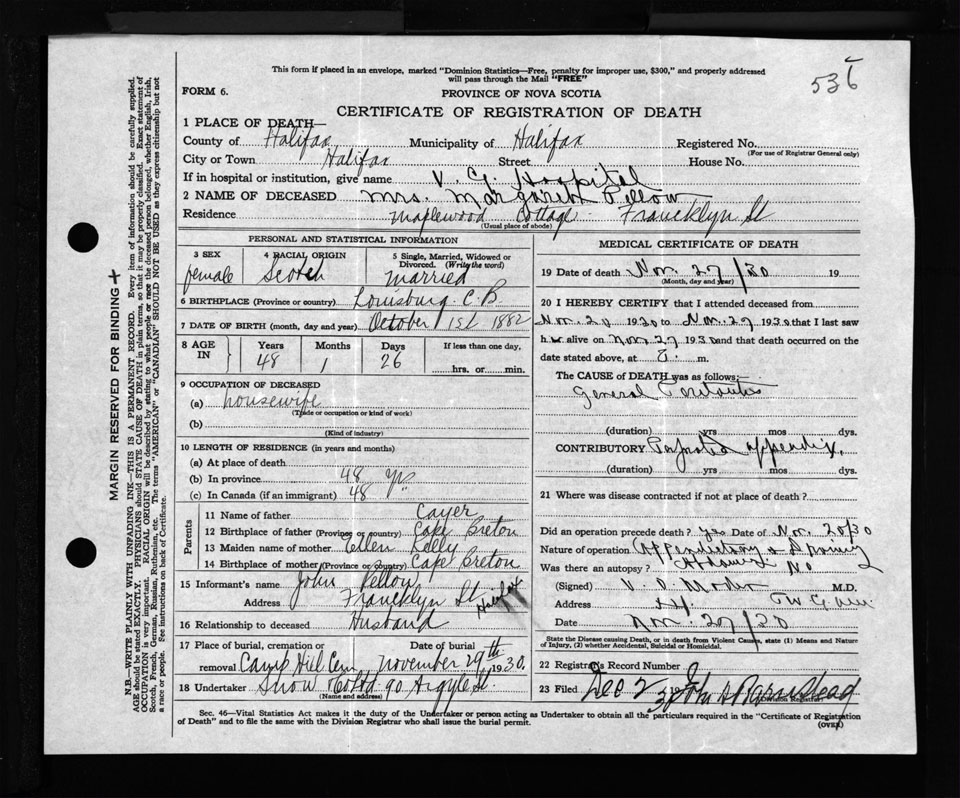 This form if placed in an envelope, marked "Dominion Statistics—Free, penalty for improper use, $300," and properly addressed
will pass through the Mail "FREE"
536
FORM 6.
PROVINCE OF NOVA SCOTIA
CERTIFICATE OF REGISTRATION OF DEATH
1 PLACE OF DEATH—
County of Halifax Municipality of Halifax Registered No.
(For use of Registrar General only)
City or Town Halifax Street House No.
If in hospital or institution, give name V. G. Hospital
2 NAME OF DECEASED Mrs. Margaret Pellow
Residence Maplewood Cottage Francklyn St
(Usual place of abode)
PERSONAL AND STATISTICAL INFORMATION
3 SEX 4 RACIAL ORIGIN 5 Single, Married, Widowed or Divorced. (Write the word)
female Scotch married
6 BIRTHPLACE (Province or country) Louisburg C.B
7 DATE OF BIRTH (month, day and year) October 1st 1882
8 AGE IN Years Months Days If less than one day,
48 1 26 hrs. or min.
9 OCCUPATION OF DECEASED
(a) housewife
(Trade or occupation or kind of work)
(b)
(Kind of industry)
10 LENGTH OF RESIDENCE (in years and months)
(a) At place of death
(b) In province 48 yrs
(c) In Canada (if an immigrant) 48
Parents
11 Name of father Cayer
12 Birthplace of father (Province or country) Cape Breton
13 Maiden name of mother Ellen Kelly
14 Birthplace of mother (Province or country) Cape Breton
15 Informant's name John Pellow
Address Francklyn St Halifax
16 Relationship to deceased Husband
17 Place of burial, cremation or Date of burial
removal Camp Hill Cem November 29th 1930.
18 Undertaker Snow & Co Ltd 90 Argyle St.
(Name and address)
MEDICAL CERTIFICATE OF DEATH
19 Date of death Nov. 27/30 19
(Month, day and year)
20 I HEREBY CERTIFY that I attended deceased from
Nov. 20 1930 to Nov. 27 1930 that I last saw
her alive on Nov 27 1930 and that death occurred on
date stated above, at m.
The CAUSE of DEATH was as follows:
General Peritonitis
(duration) yrs mos dys.
CONTRIBUTORY Perforated appendix.
(duration) yrs mos dys.
21 Where was disease contracted if not at place of death?
Did an operation precede death? yes Date of Nov. 20/30
Nature of operation Appendectomy &
Was there an autopsy? No
(Signed) M.D.
Address
Date Nov. 27/30
State the Disease causing Death, or in death from Violent Causes, state (1) Means and Nature
of Injury, (2) whether Accidental, Suicidal or Homicidal.
22 Registrar's Record Number
23 Filed Dec 2 30 John
(Division Registrar)
Sec. 46—Vital Statistics Act makes it the duty of the Undertaker or person acting as Undertaker to obtain all the particulars required in the "Certificate of Registration
of Death" and to file the same with the Division Registrar who shall issue the burial permit.
(OVER)
MARGIN RESERVED FOR BINDING
N.B.—WRITE PLAINLY WITH UNFADING INK—THIS IS A PERMANENT RECORD. Every item of information should be carefully supplied.
AGE should be stated EXACTLY. PHYSICIANS should STATE CAUSE OF DEATH in plain terms, so that it may be properly classified. Exact statement of
OCCUPATION is very important. RACIAL ORIGIN will be described by stating to what people or race the deceased person belonged, whether English, Irish,
Scotch, French, German, Russian, Ruthenian, etc. The terms "AMERICAN" or "CANADIAN" SHOULD NOT BE USED as they express citizenship but not
a race or people. See instructions on back of Certificate.